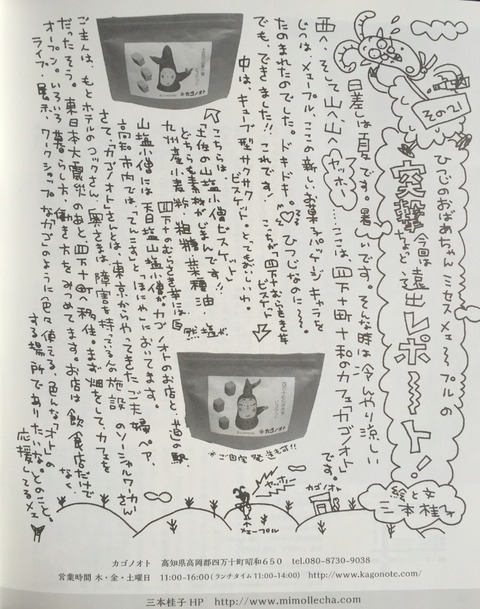 その21
ひつじのおばあちゃん ミセスメェ〜プルの
突撃 今回は ちょと遠出 レポ〜〜ト！
絵と文 三本桂子
日差しは夏です。暑いです。そんな時は冷んやり涼しい
西へ、そして山へ山へ ヤッホー ここは、四万十町十和のカフェ「カゴノオト」
です。
じつは、メェ〜プル、ここの新しいお菓子パッケージキャラを
たのまれたのでした。ドキドキ。♡ ひつじなのに〜。
でも、できました!! これです!
これが四万十むらさき芋
ビスボト
中は、キューブ型サクサクビスケット。とてもおいしいわ。
こちらは
土佐の山塩小僧ビスボト
どちらも素材がじまんです!!
九州産小麦粉・粗糖・菜種油・塩
※ご自宅発送も可!!
山塩小僧には天日塩山塩小僧がカゴノオトのお店と、道の駅、
高知市内では、てんこすと ほにやにおいてます。
さて、「カゴノオト」さんとは、東京からやってきたご夫婦ペア。
ご主人は、もとホテルのコックさん、奥さまは、障害を持っている人の施設のソーシャルワーカーさん
だったそう。東日本大震災のあと四万十町へ移住。まず畑をして、カフェを
オープン。いろいろな暮らし方、働き方をみつめてます。お店は飲食店だけでなく、
ライブ、展示、ワークショップなど、カゴのように色々使える、色んな「オト」の
する場所でありたいな。とのこと。
応援してるメェ
ヤッホー
メェープル
カゴノオト
カゴノオト　高知県高岡郡四万十町昭和650　tel.080-8730-9038
営業時間 木・金・土曜日　11:00-16:00(ランチタイム11:00-14:00)　http://www.kagonote.com/
三本桂子HP　http://www.mimollecha.com/